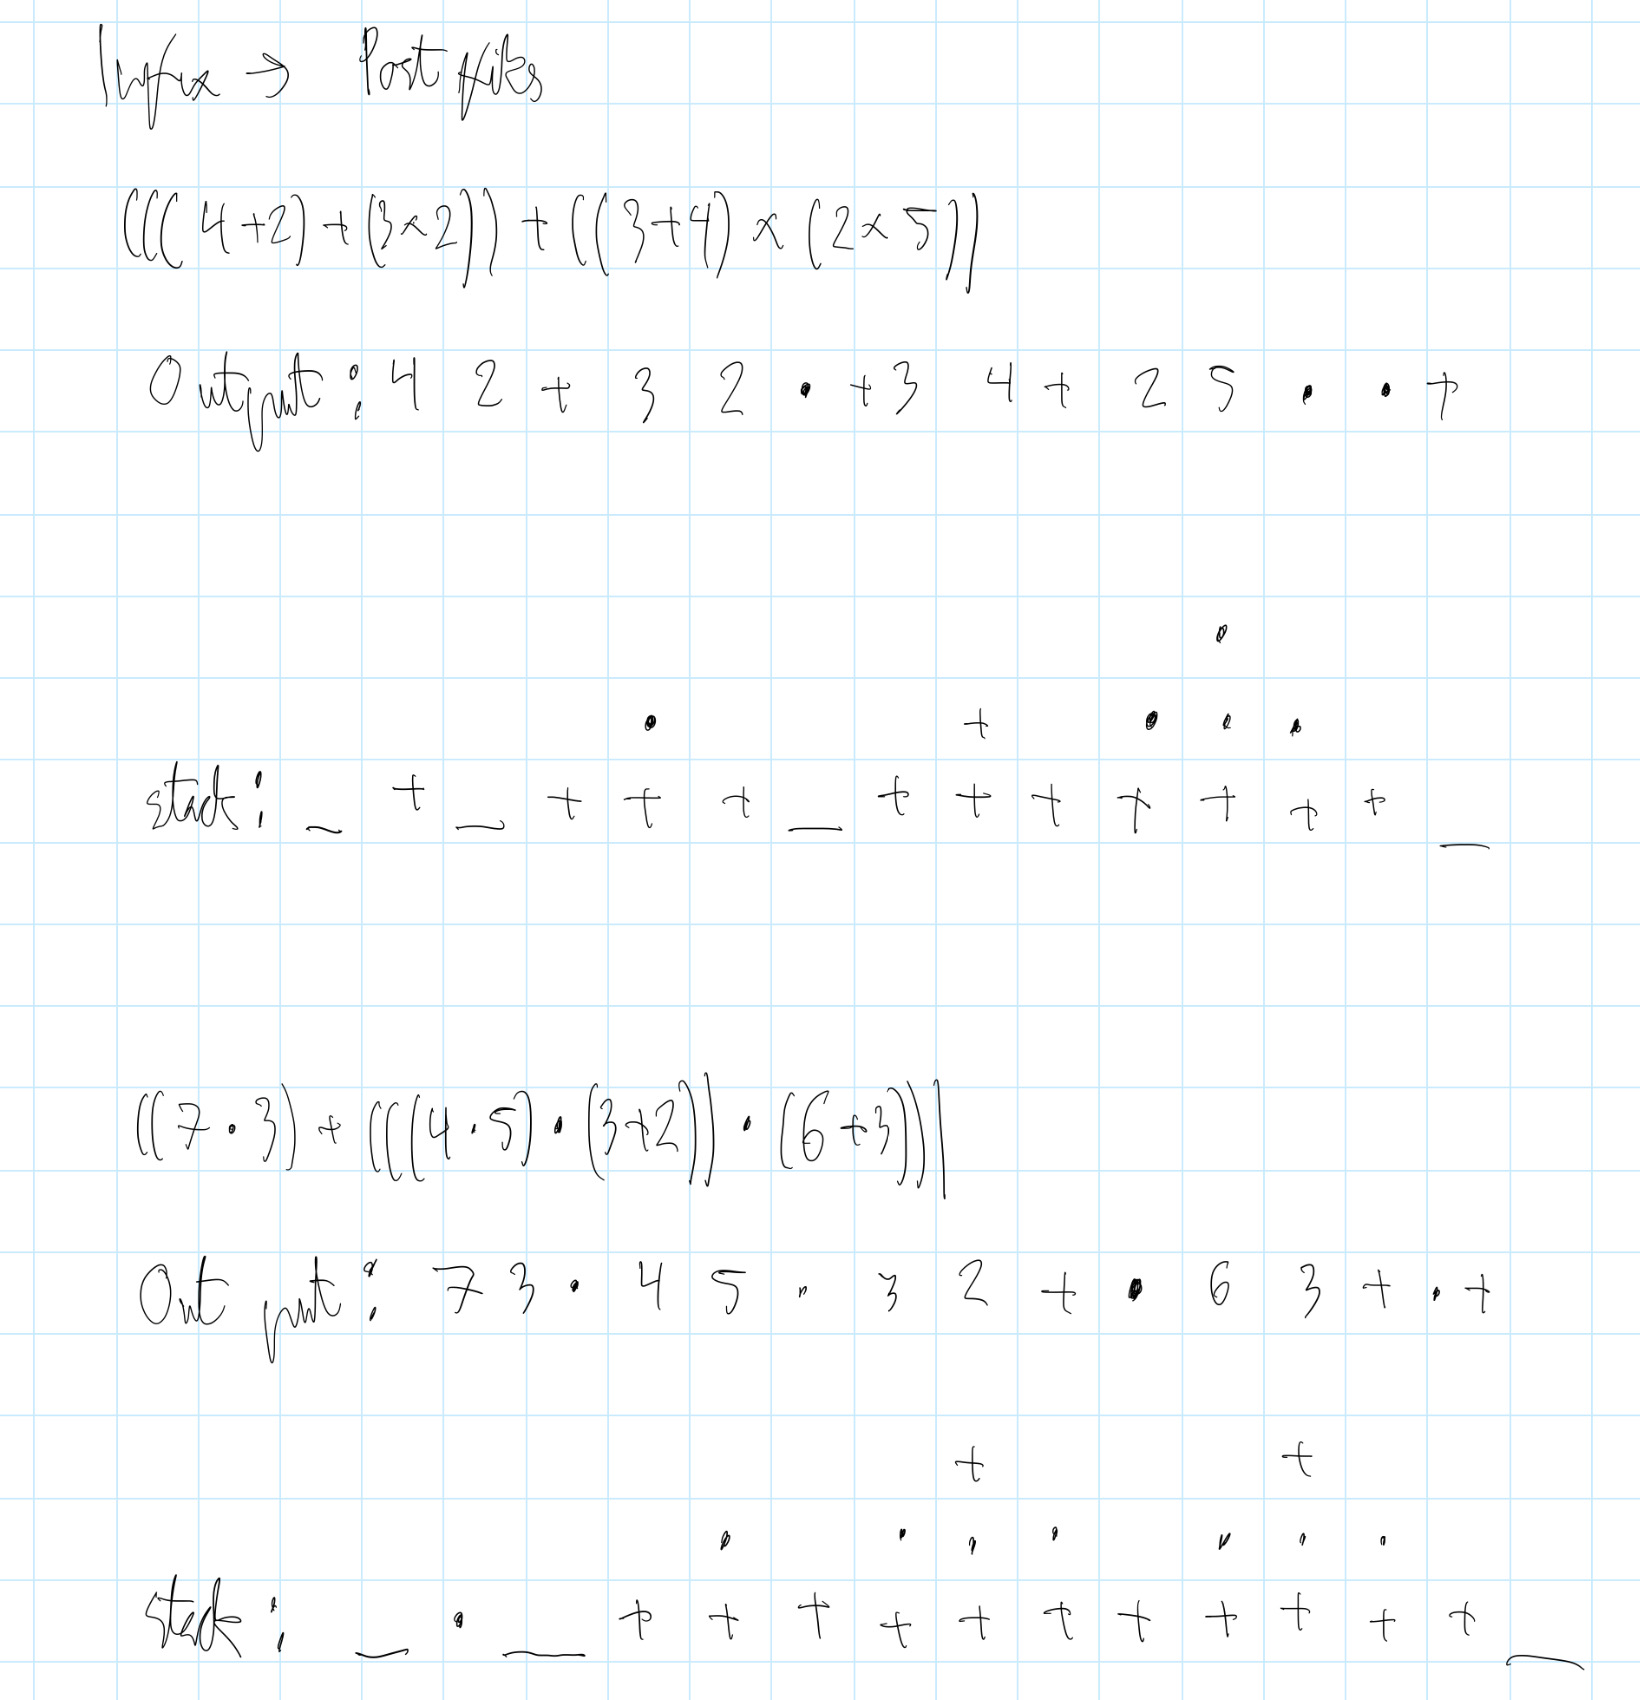 Infix → Postfiks
(((4+2)+(3×2))+((3+4)×(2×5))
Output: 4 2 + 3 2 • + 3 4 + 2 5 • • +
•
• + • • •
stack: _ + _ + + + _ + + + + + + + _
((7•3)+(((4•5)•(3+2))•(6+3)))
Output: 7 3 • 4 5 • 3 2 + • 6 3 + • +
+ +
• • • • • • •
stack: _ • _ + + + + + + + + + + + _